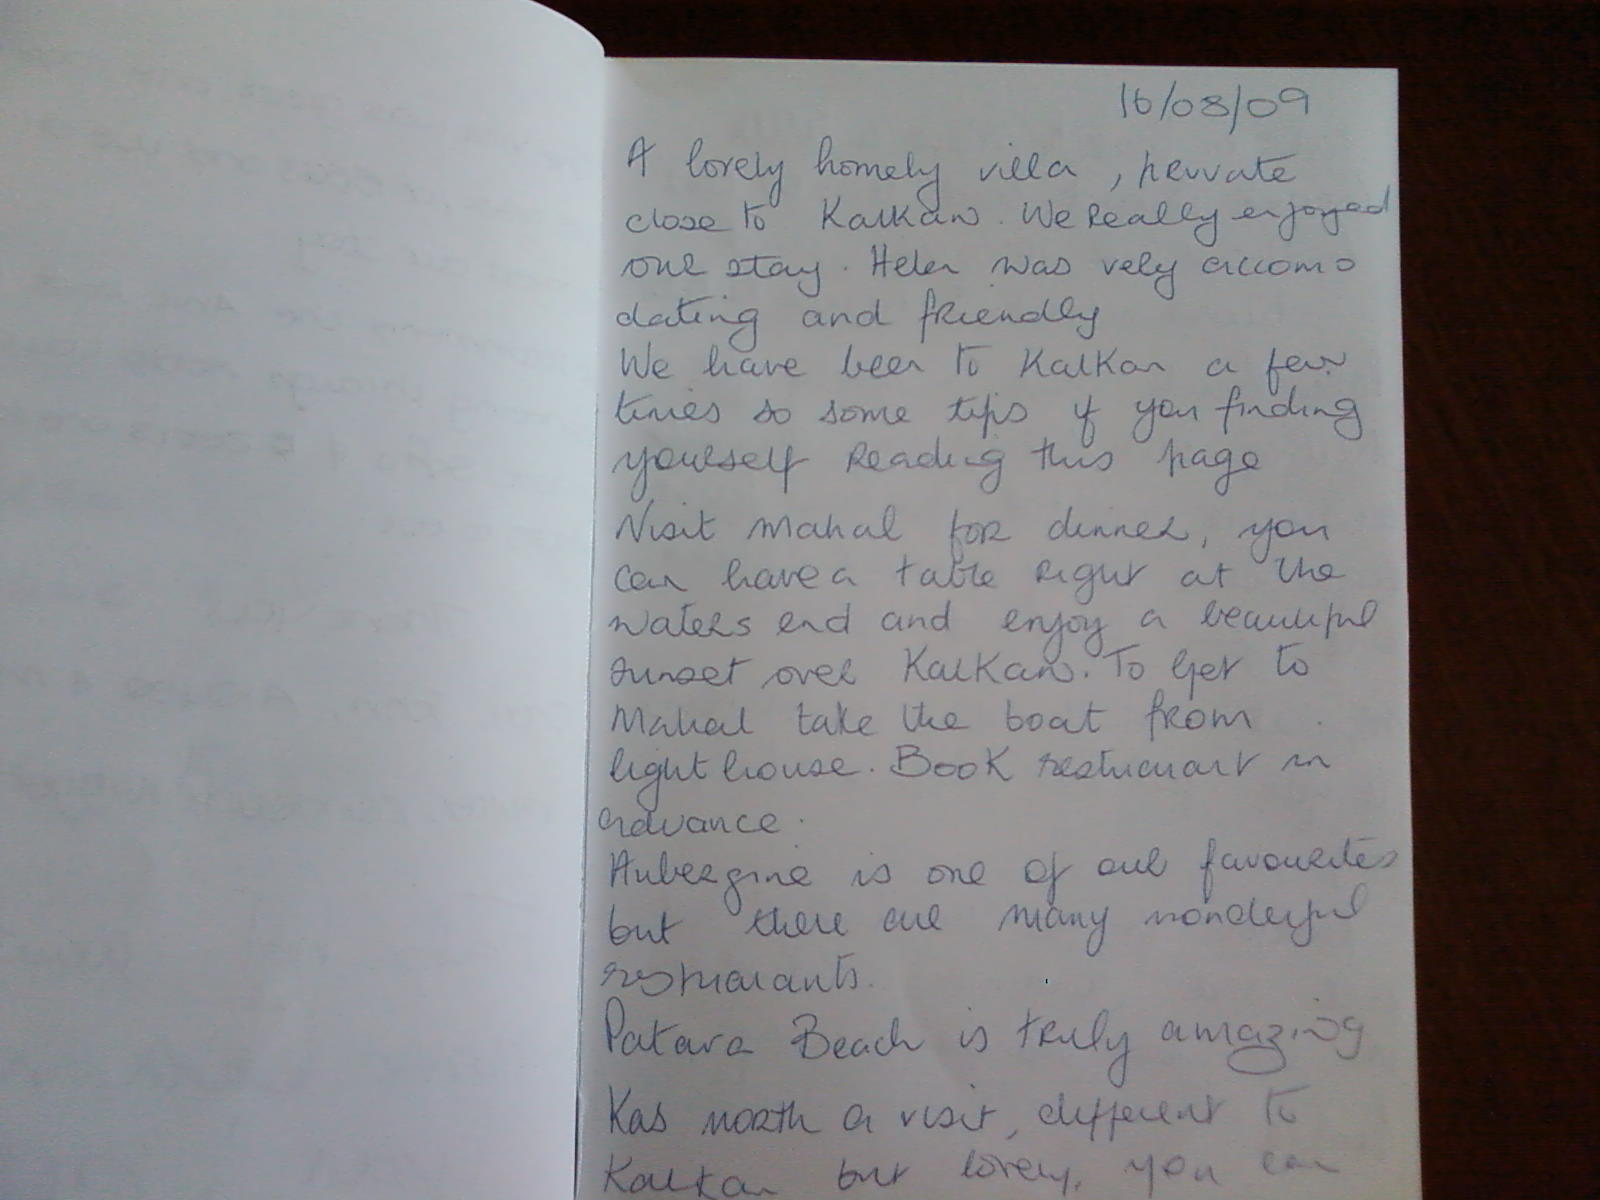 16/08/09
A lovely homely villa, private
close to Kalkan. We really enjoyed
our stay. Helen was very accomo
dating and friendly
We have been to Kalkan a few
times so some tips if you finding
yourself reading this page
Visit Mahal for dinner, you
can have a table right at the
waters end and enjoy a beautiful
sunset over Kalkan. To get to
Mahal take the boat from
light house. Book restuarart in
advance.
Aubergine is one of our favourites
but there are many wonderful
restuarants.
Patara Beach is truly amazing
Kas worth a visit, different to
Kalkan but lovely, you can